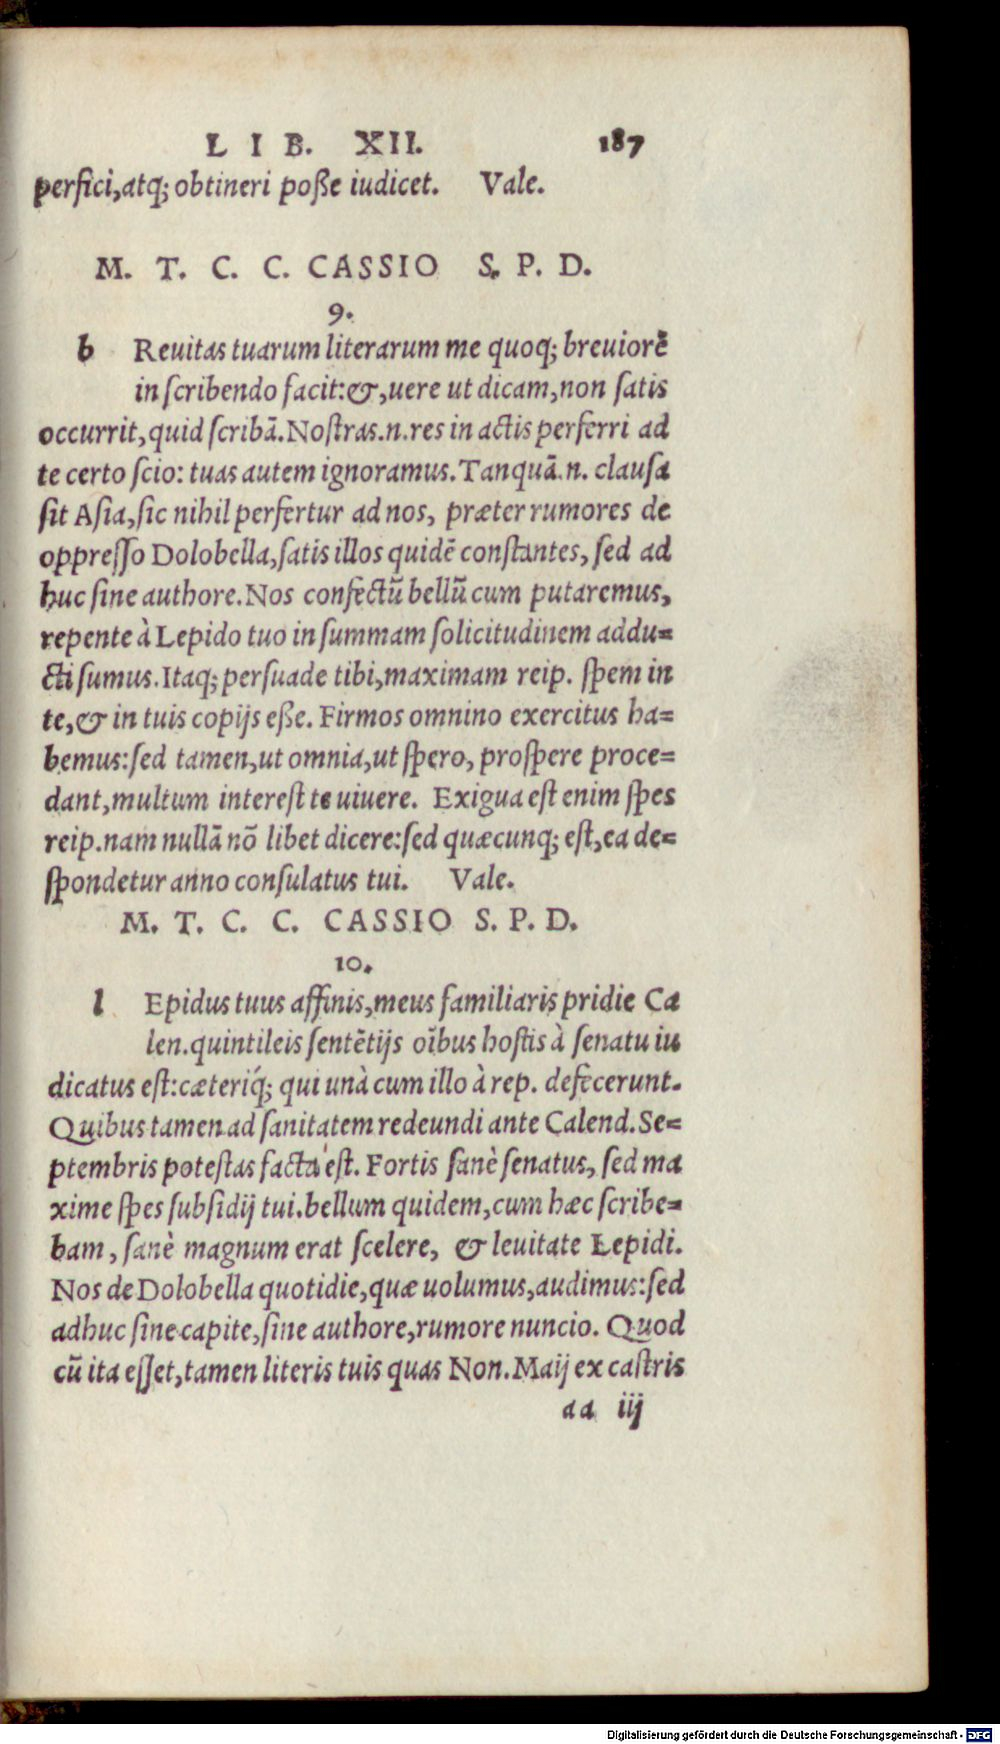 LIB. XII. 187
perfici,atq; obtineri poße iudicet. Vale.
M. T. C. C. CASSIO S. P. D.
9.
b Reuitas tuarum literarum me quoq; breuiorē
in ſcribendo facit:&,uere ut dicam,non ſatis
occurrit,quid ſcribā.Noſtras.n.res in actis perferri ad
te certo ſcio: tuas autem ignoramus.Tanquā.n. clauſa
ſit Aſia,ſic nihil perfertur ad nos, præter rumores de
oppreſſo Dolobella,ſatis illos quidē conſtantes, ſed ad
huc ſine authore.Nos confectū bellū cum putaremus,
repente à Lepido tuo in ſummam ſolicitudinem addu=
cti ſumus.Itaq; perſuade tibi,maximam reip. ſpem in
te,& in tuis copijs eße. Firmos omnino exercitus ha=
bemus:ſed tamen,ut omnia,ut ſpero, proſpere proce=
dant,multum intereſt te uiuere. Exigua eſt enim ſpes
reip.nam nullā nō libet dicere:ſed quæcunq; eſt,ea de=
ſpondetur anno conſulatus tui. Vale.
M. T. C. C. CASSIO S. P. D.
10.
l Epidus tuus affinis,meus familiaris pridie Ca
len.quintileis ſentētijs oībus hoſtis à ſenatu iu
dicatus eſt:cæteriq́; qui unà cum illo à rep. defecerunt.
Quibus tamen ad ſanitatem redeundi ante Calend.Se=
ptembris poteſtas facta eſt. Fortis ſanè ſenatus, ſed ma
xime ſpes ſubſidij tui.bellum quidem,cum hæc ſcribe=
bam, ſanè magnum erat ſcelere, & leuitate Lepidi.
Nos de Dolobella quotidie,quæ uolumus,audimus:ſed
adhuc ſine capite,ſine authore,rumore nuncio. Quod
cū ita eſſet,tamen literis tuis quas Non.Maij ex caſtris
aa iij
Digitalisierung gefördert durch die Deutsche Forschungsgemeinschaft - DFG